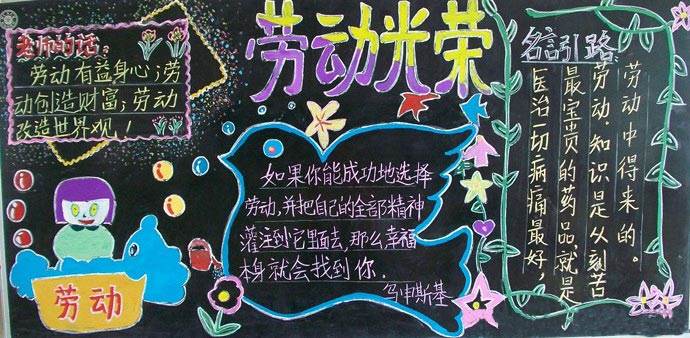 劳动光荣
老师的话：
劳动有益身心；劳
动创造财富；劳动
改造世界观！
劳动
如果你能成功地选择
劳动，并把自己的全部精神
灌注到它里面去，那么幸福
本身就会找到你．
乌申斯基
名言引路
医治一切病痛最好，
最宝贵的药品，就是
劳动．知识是从刻苦
劳动中得来的。